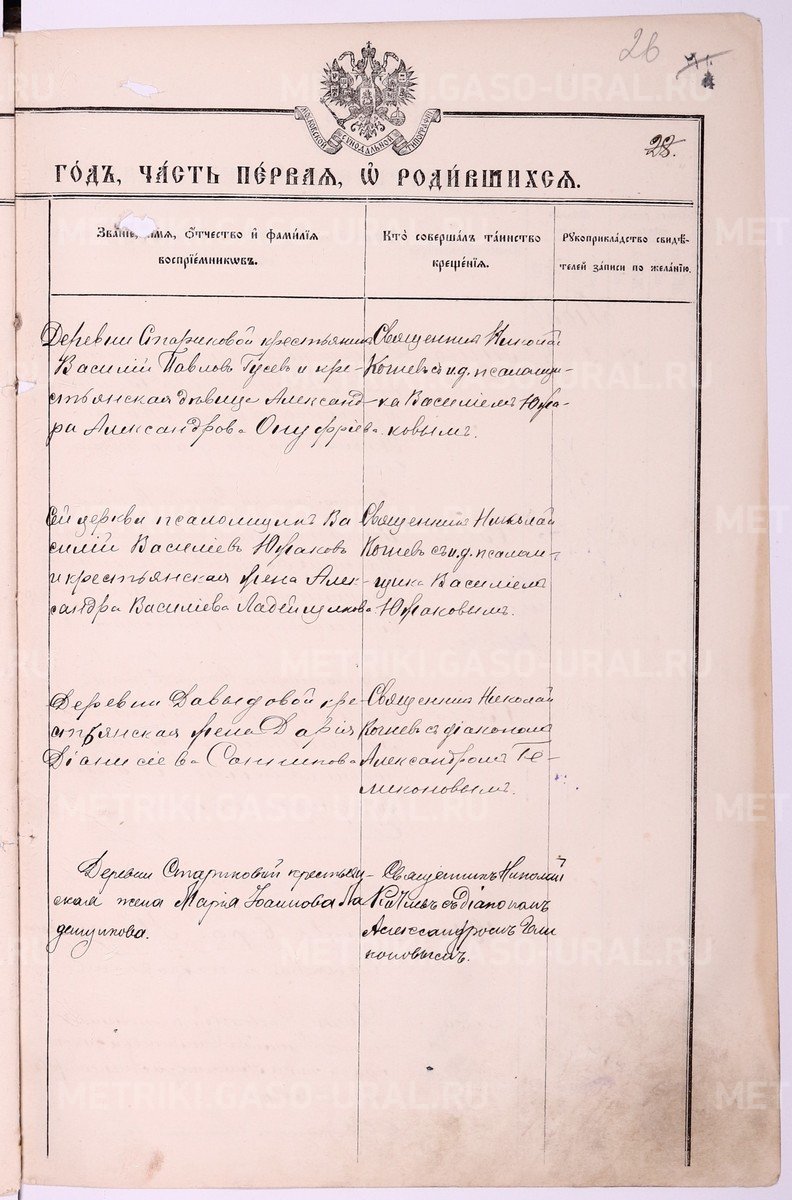 26
28.
МОСКОВСКОЙ СѴНОДАЛЬНОЙ ТИПОГРАФІИ
ГОДЪ, ЧАСТЬ ПЕРВАЯ, Ѡ РОДИВШИХСЯ.
Званіе, имя, отчество и фамилія
воспріемниковъ.
Кто совершалъ таинство
крещенія.
Рукоприкладство свидѣ-
телей записи по желанію.
Деревни Стариковой крестьянинъ
Василій Павловъ Гусевъ и кре-
стьянская дѣвица Александ-
ра Александрова Онуфріева.
Священникъ Николай
Когневъ с и. д. псаломщи-
ка Василіемъ Южа-
ковымъ.
Сей церкви псаломщикъ Ва
силій Василіевъ Южаковъ
и крестьянская жена Алек-
сандра Василіева Ладейщикова
Священникъ Николай
Когневъ съ и. д. псалом-
щика Василіемъ
Южаковымъ.
Деревни Давыдовой кре-
стьянская жена Дарія
Діанисіева Санникова
Священникъ Николай
Когневъ съ діакономъ
Александромъ Ге-
ликоновымъ.
Деревни Стариковой крестьян-
ская жена Марія Іоаннова Ла
дейщикова.
Священникъ Николай
съ діакономъ
Александромъ Гели
коновымъ.
METRIKI.GASO-URAL.RU